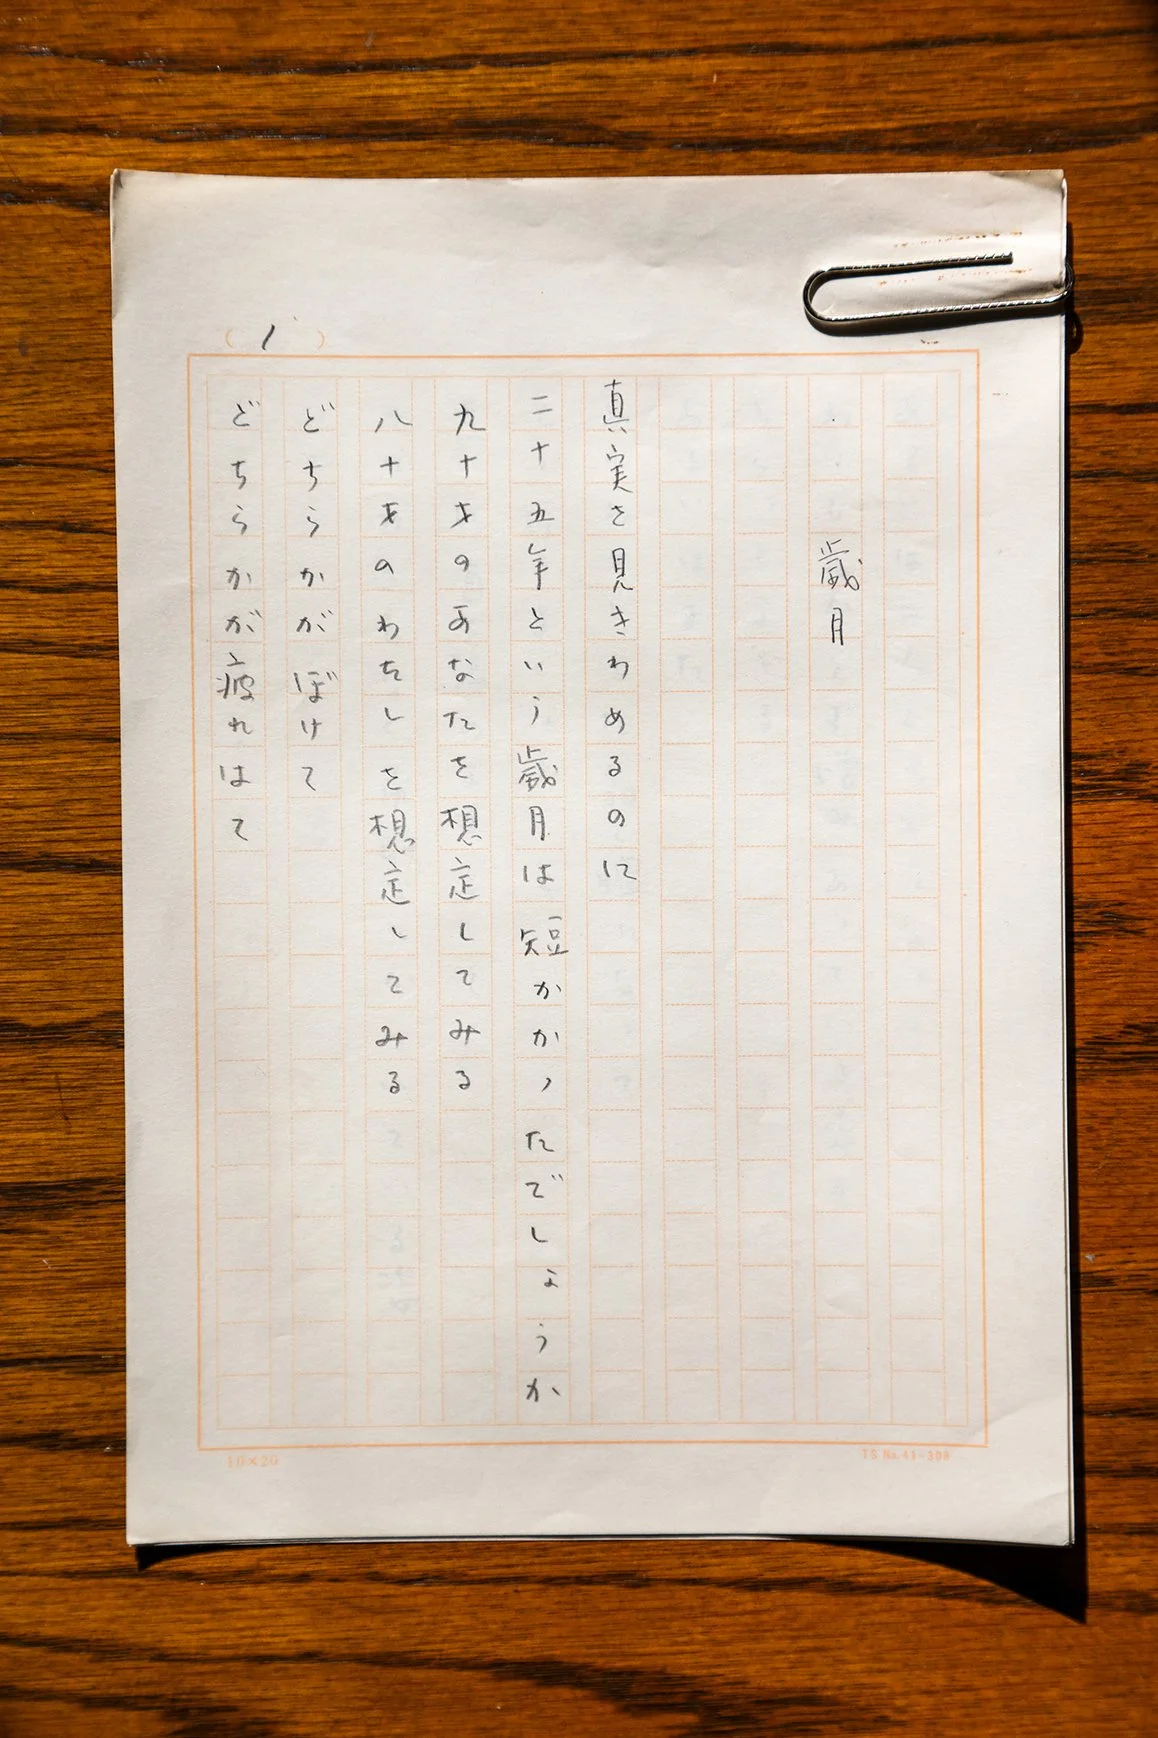 歳月
真実を見きわめるのに
二十五年という歳月は短かかったでしょうか
九十才のあなたを想定してみる
八十才のわたしを想定してみる
どちらかがぼけて
どちらかが疲れはて
(1)
10×20
TS No.41-308